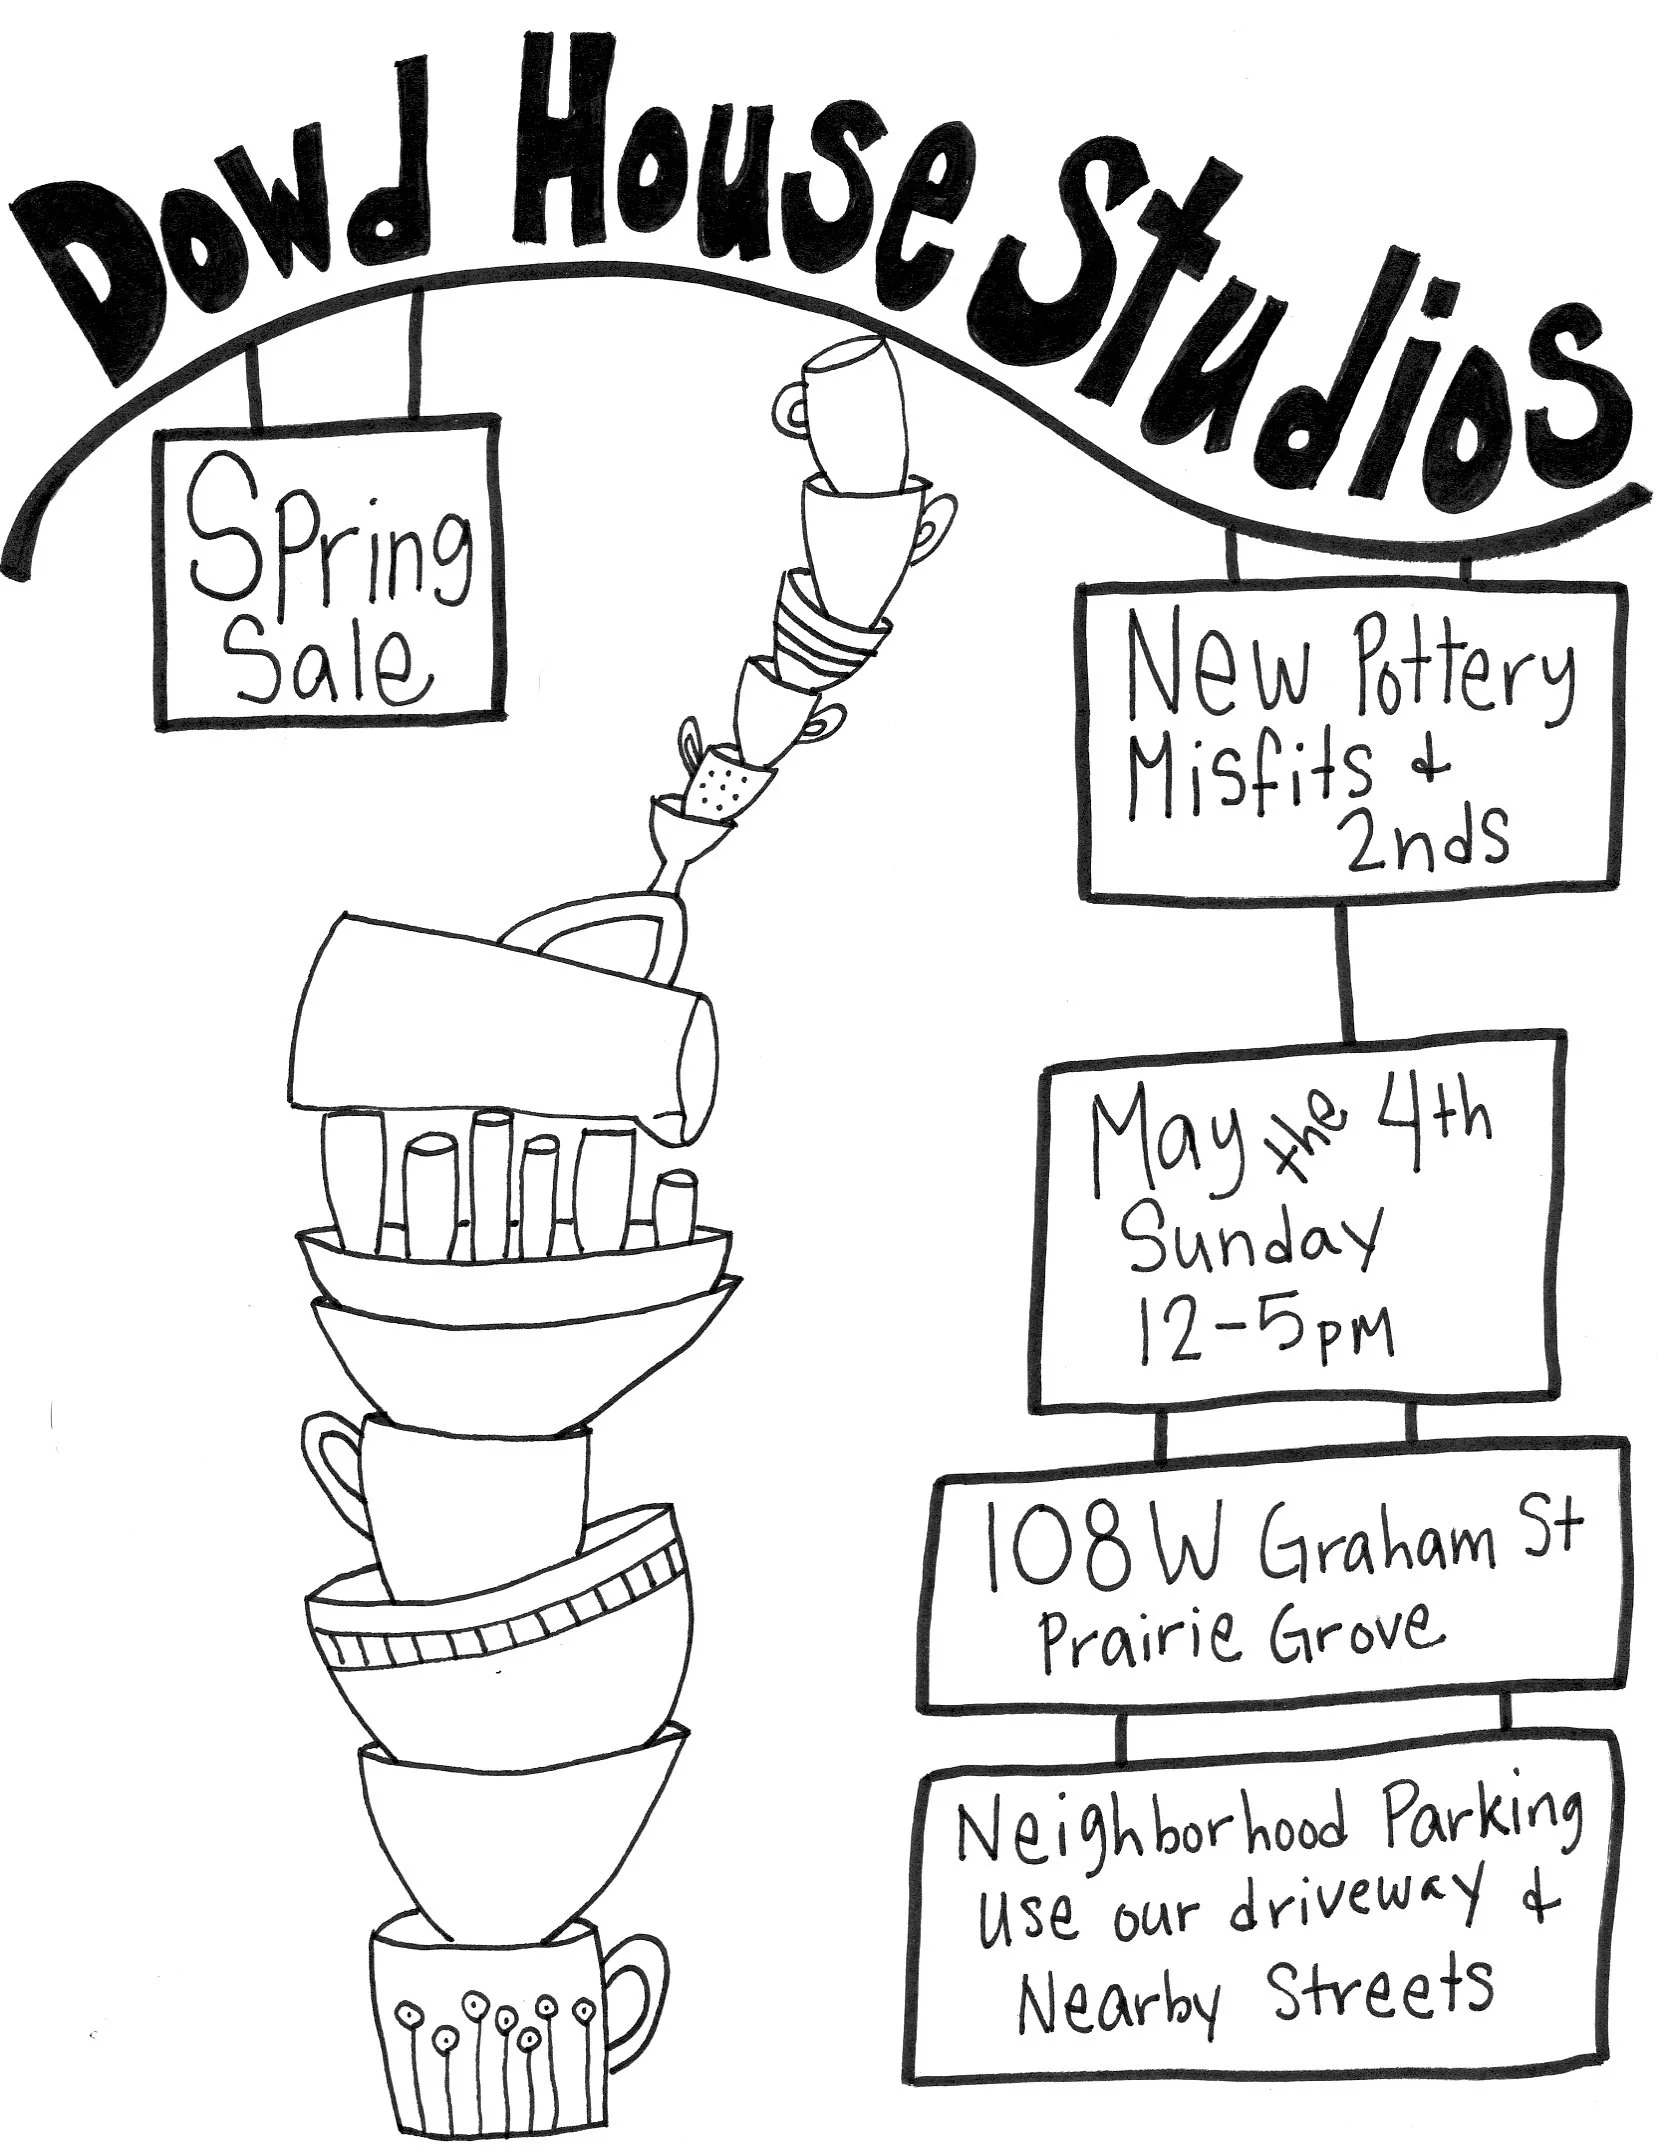 Dowd House Studios
Spring
Sale
New Pottery
Misfits &
2nds
May the 4th
Sunday
12-5pm
108 W Graham St
Prairie Grove
Neighborhood Parking
Use our driveway &
Nearby Streets